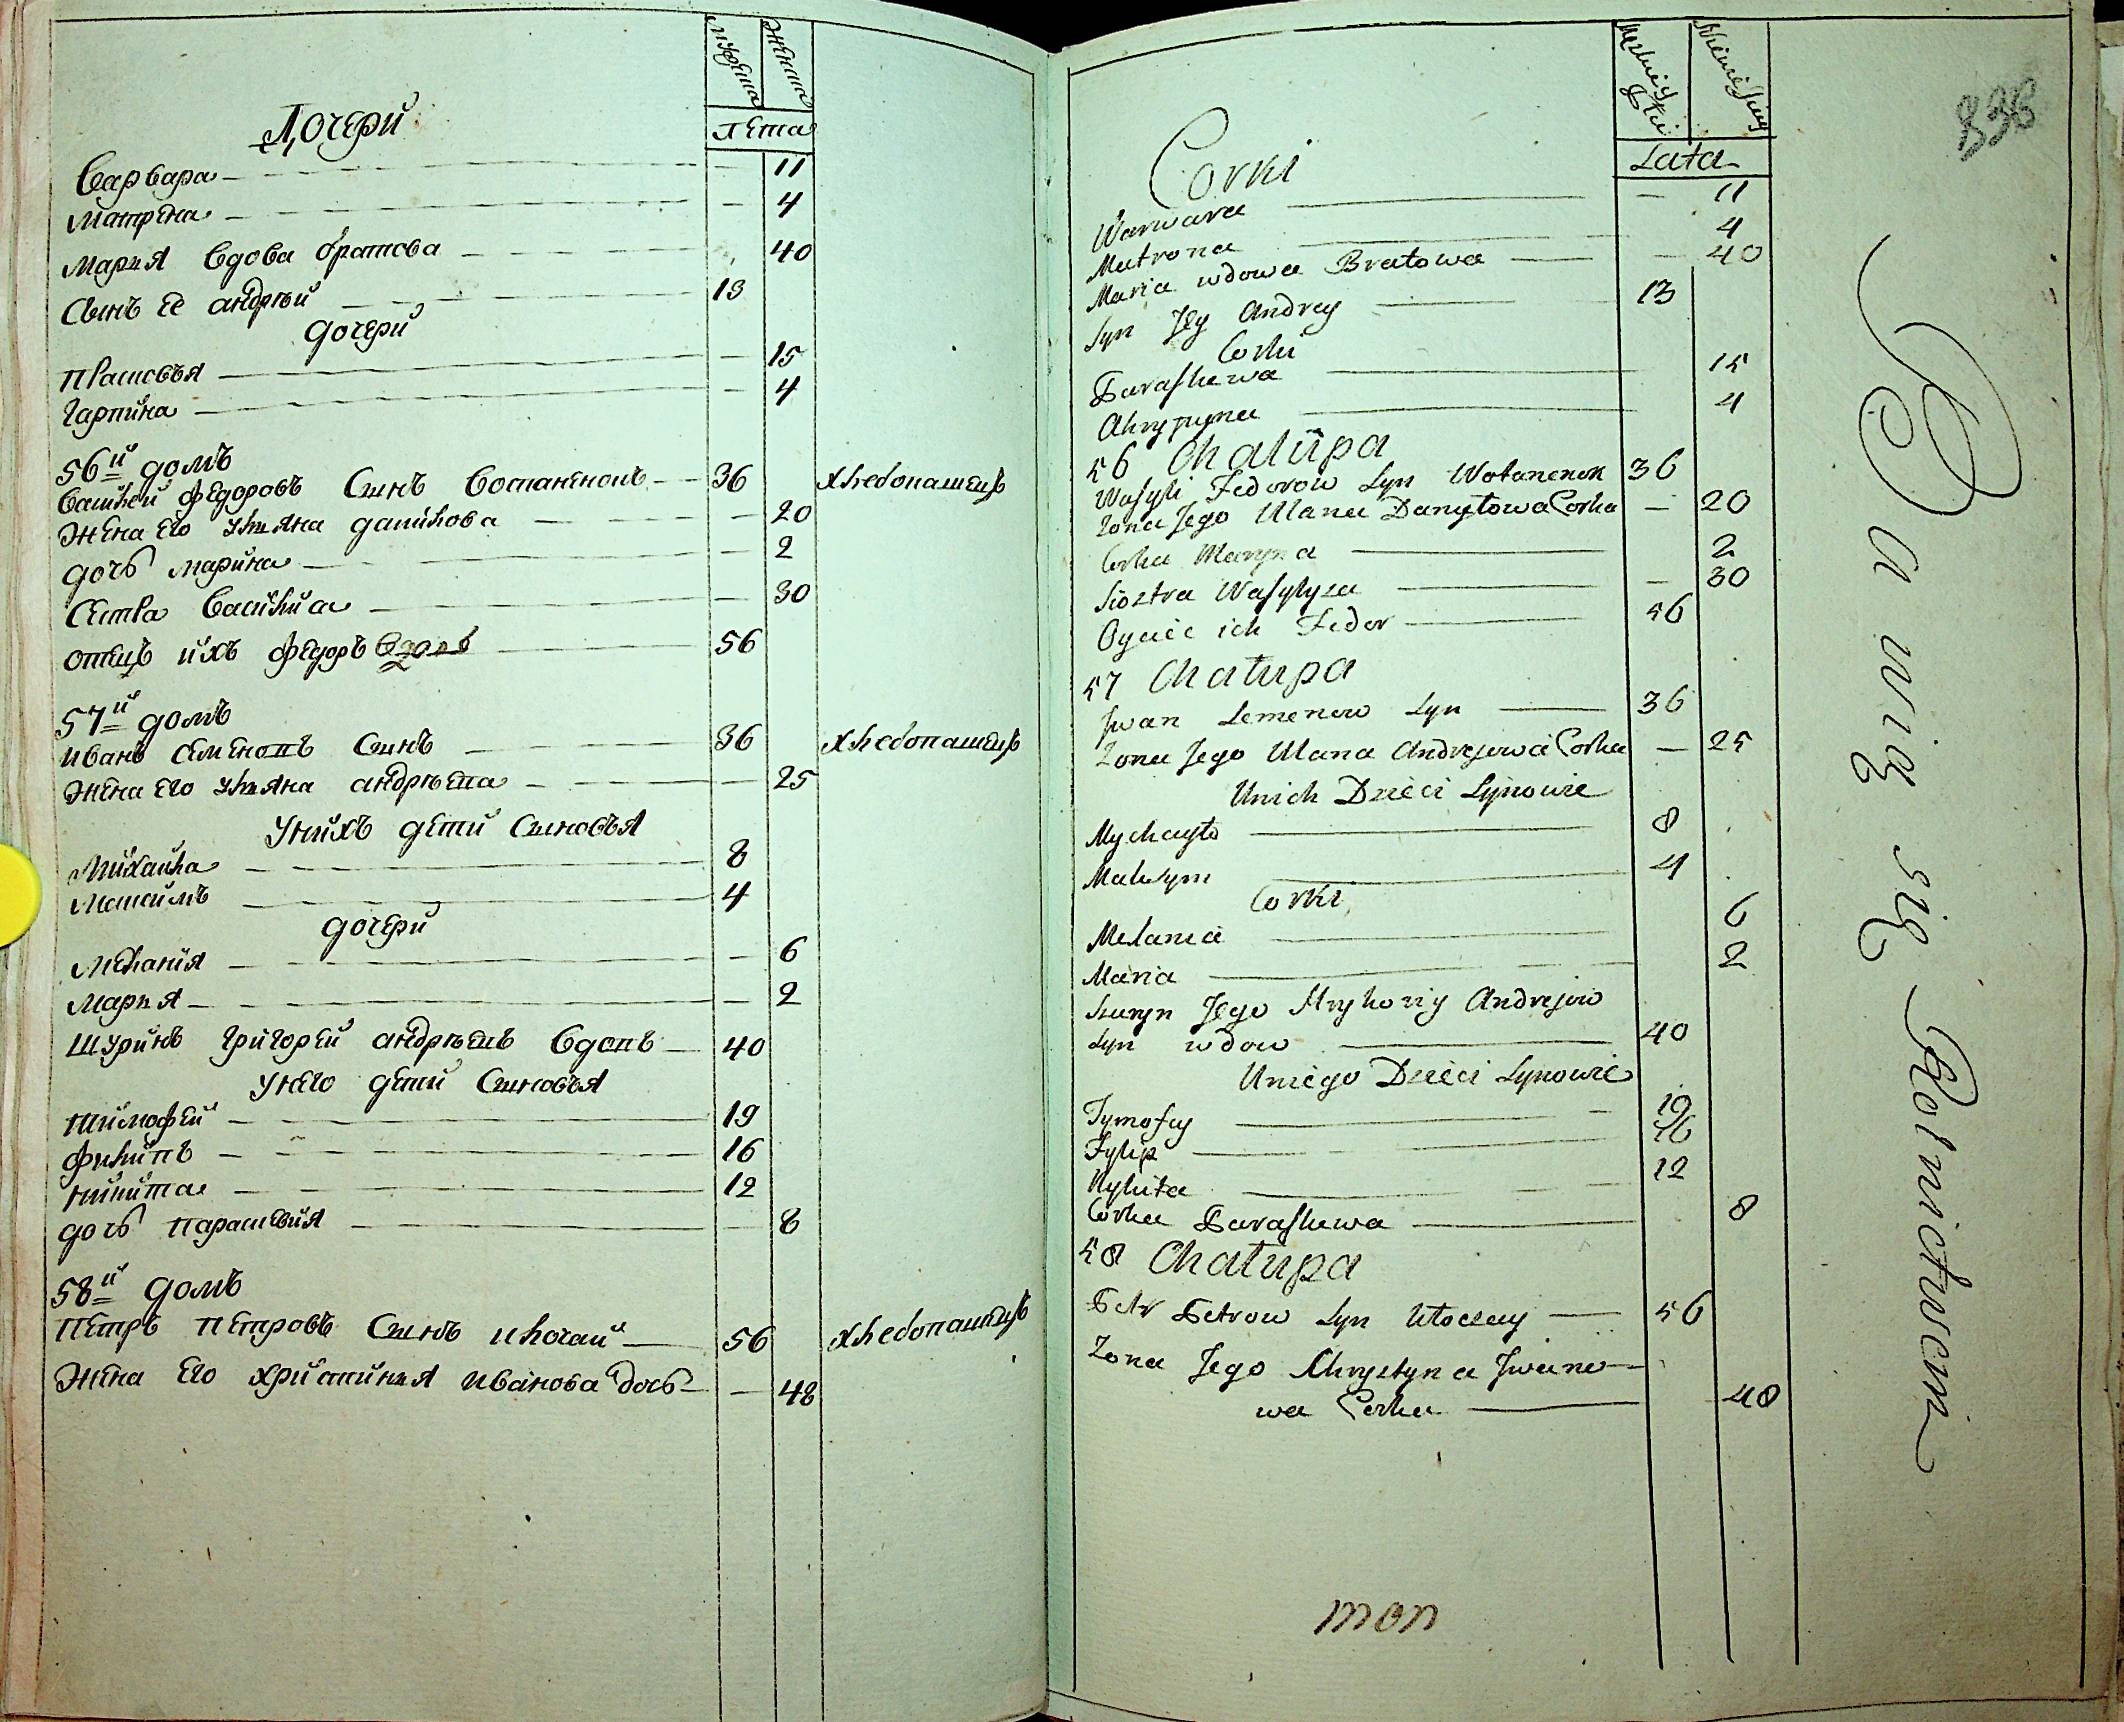 мужеска
женска
лета
Дочери
Варвара — 11
Матрена — 4
Мария вдова братова — 40
Сынъ ее андрѣй — 13
дочери
Прасковья — 15
Гарпина — 4
56й домъ
Василей федоровъ Сынъ — 36 хлебопашецъ
Жена его ульяна данилова — 20
дочь марина — 2
Сестра Василиса — 30
отецъ ихъ федоръ вдовъ — 56
57й домъ
иванъ семеновъ Сынъ — 36 хлебопашецъ
Жена его ульяна андрѣева — 25
Унихъ дети Сыновья
Михайла — 8
Максимъ — 4
дочери
Мелания — 6
Мария — 2
Шуринъ григорей андрѣевъ вдовъ — 40
Унего дети Сыновья
тимофей — 19
филипъ — 16
никита — 12
дочь параскевия — 8
58й домъ
петръ петровъ Сынъ — 56 хлебопашецъ
Жена его христиния иванова дочь — 48
836
Lata
Corki
Warwara — 11
Matrona — 4
Maria wdowa Bratowa — 40
Syn Jey Andrey — 13
Corki
Paraskewa — 15
Ahrypyna — 4
56 Chałupa
Wasyli Fedorow Syn Wotanenok 36
Zona Jego Ulana Danyłowa Corka — 20
Corka Maryna — 2
Siostra Wasylysa — 30
Oyciec ich Fedor — 56
57 Chałupa
Jwan Semenow Syn — 36
Zona Jego Ulana Andrejewa Corka — 25
Unich Dzieci Synowie
Mychayło — 8
Maksym — 4
Corki
Melania — 6
Maria — 2
Szuryn Jego Hryhoriy Andrejow
Syn wdow — 40
Uniego Dzieci Synowie
Tymofey — 19
Fylip — 16
Nykita — 12
Corka Paraskewa — 8
58 Chałupa
Petr Petrow Syn — 56
Zona Jego Chrystyna Jwano—
wa Corka — 48
Bawią się Rolnictwem